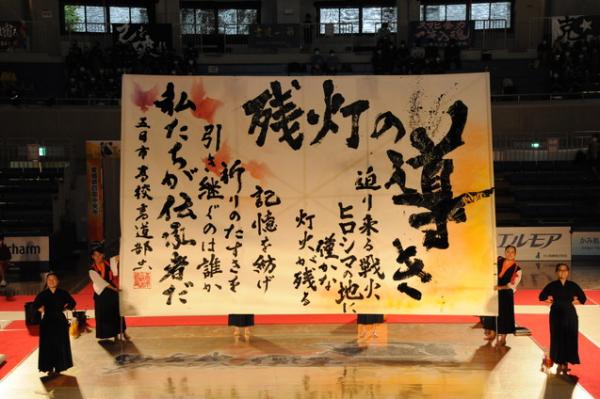 残灯の
導き
迫り来る戦火
ヒロシマの地に
僅かな
灯火が残る
記憶を紡げ
祈りのたすきを
引き継ぐのは誰か
私たちが伝承者だ
五日市高校書道部
エルモア
charm